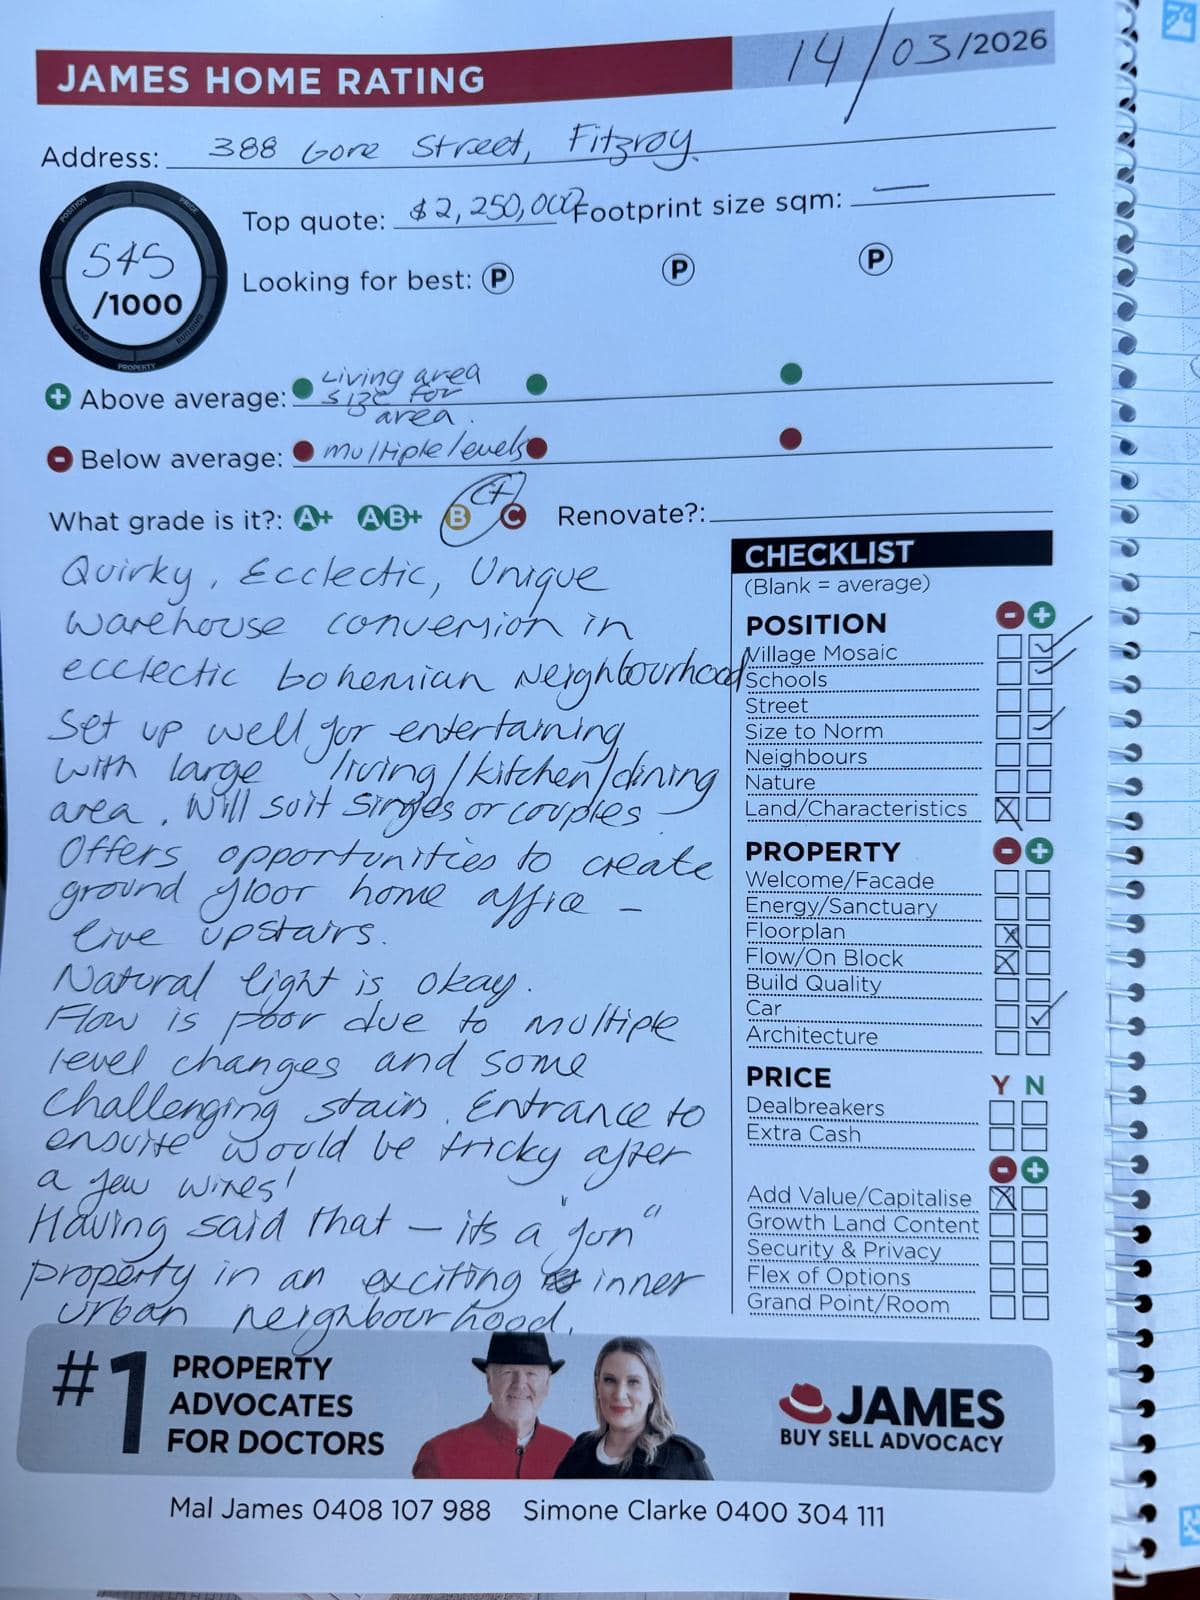 14/03/2026
JAMES HOME RATING
Address: 388 Gore Street, Fitzroy.
Top quote: $2,250,000 Footprint size sqm: —
545
/1000
POSITION
PRICE
BUILDING
PROPERTY
LAND
Looking for best: P P P
+ Above average: Living area
size for
area.
- Below average: multiple levels
What grade is it?: A+ AB+ B C+ C Renovate?:
Quirky, Ecclectic, Unique
warehouse conversion in
ecclectic bohemian neighbourhood
Set up well for entertaining
with large living/kitchen/dining
area. Will suit singles or couples
Offers opportunities to create
ground floor home office –
live upstairs.
Natural light is okay.
Flow is poor due to multiple
level changes and some
challenging stairs. Entrance to
ensuite would be tricky after
a few wines!
Having said that – its a "gun"
property in an exciting inner
urban neighbourhood.
CHECKLIST
(Blank = average)
POSITION - +
Village Mosaic
Schools
Street
Size to Norm
Neighbours
Nature
Land/Characteristics
PROPERTY - +
Welcome/Facade
Energy/Sanctuary
Floorplan
Flow/On Block
Build Quality
Car
Architecture
PRICE Y N
Dealbreakers
Extra Cash
- +
Add Value/Capitalise
Growth Land Content
Security & Privacy
Flex of Options
Grand Point/Room
#1 PROPERTY
ADVOCATES
FOR DOCTORS
JAMES
BUY SELL ADVOCACY
Mal James 0408 107 988 Simone Clarke 0400 304 111